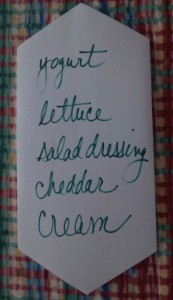 yogurt
lettuce
salad dressing
cheddar
cream